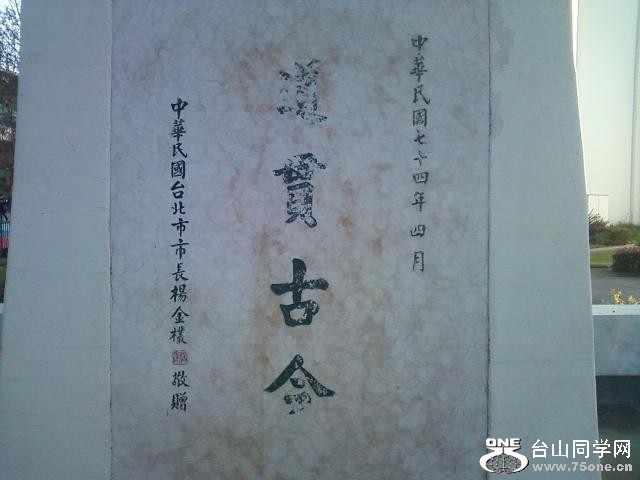 中華民國七十四年四月
道貫古今
中華民國台北市市長楊金欉
敬贈
ONE
台山同学网
www.75one.cn